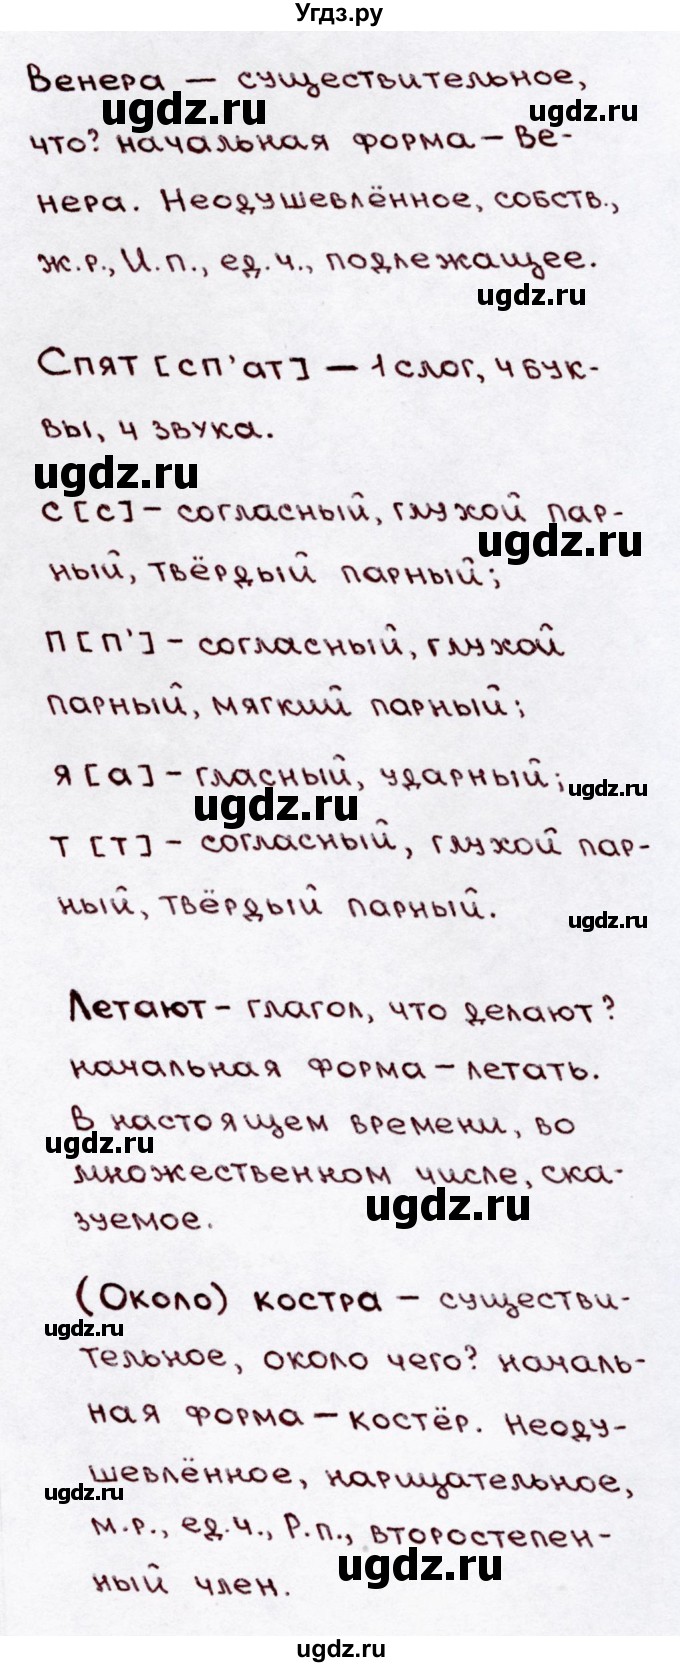 Угдз.ру
Венера — существительное,
ugdz.ru
ugdz.ru
что? начальная форма – Ве-
нера. Неодушевлённое, собств.,
ж.р., И.п., ед.ч., подлежащее.
ugdz.ru
Спят [сп'ат] — 1 слог, 4 бук-
вы, 4 звука.
ugdz.ru
с [с] – согласный, глухой пар-
ugdz.ru
ный, твёрдый парный;
п [п'] – согласный, глухой
парный, мягкий парный;
я [а] – гласный, ударный;
ugdz.ru
ugdz.ru
т [т] – согласный, глухой пар-
ный, твёрдый парный.
ugdz.ru
Летают – глагол, что делают?
начальная форма – летать.
В настоящем времени, во
ugdz.ru
множественном числе, ска-
ugdz.ru
зуемое.
(Около) костра – существи-
ugdz.ru
тельное, около чего? началь-
ная форма – костёр. Неоду-
шевлённое, нарицательное,
ugdz.ru
м.р., ед.ч., Р.п., второстепен-
ugdz.ru
ный член.
ugdz.ru